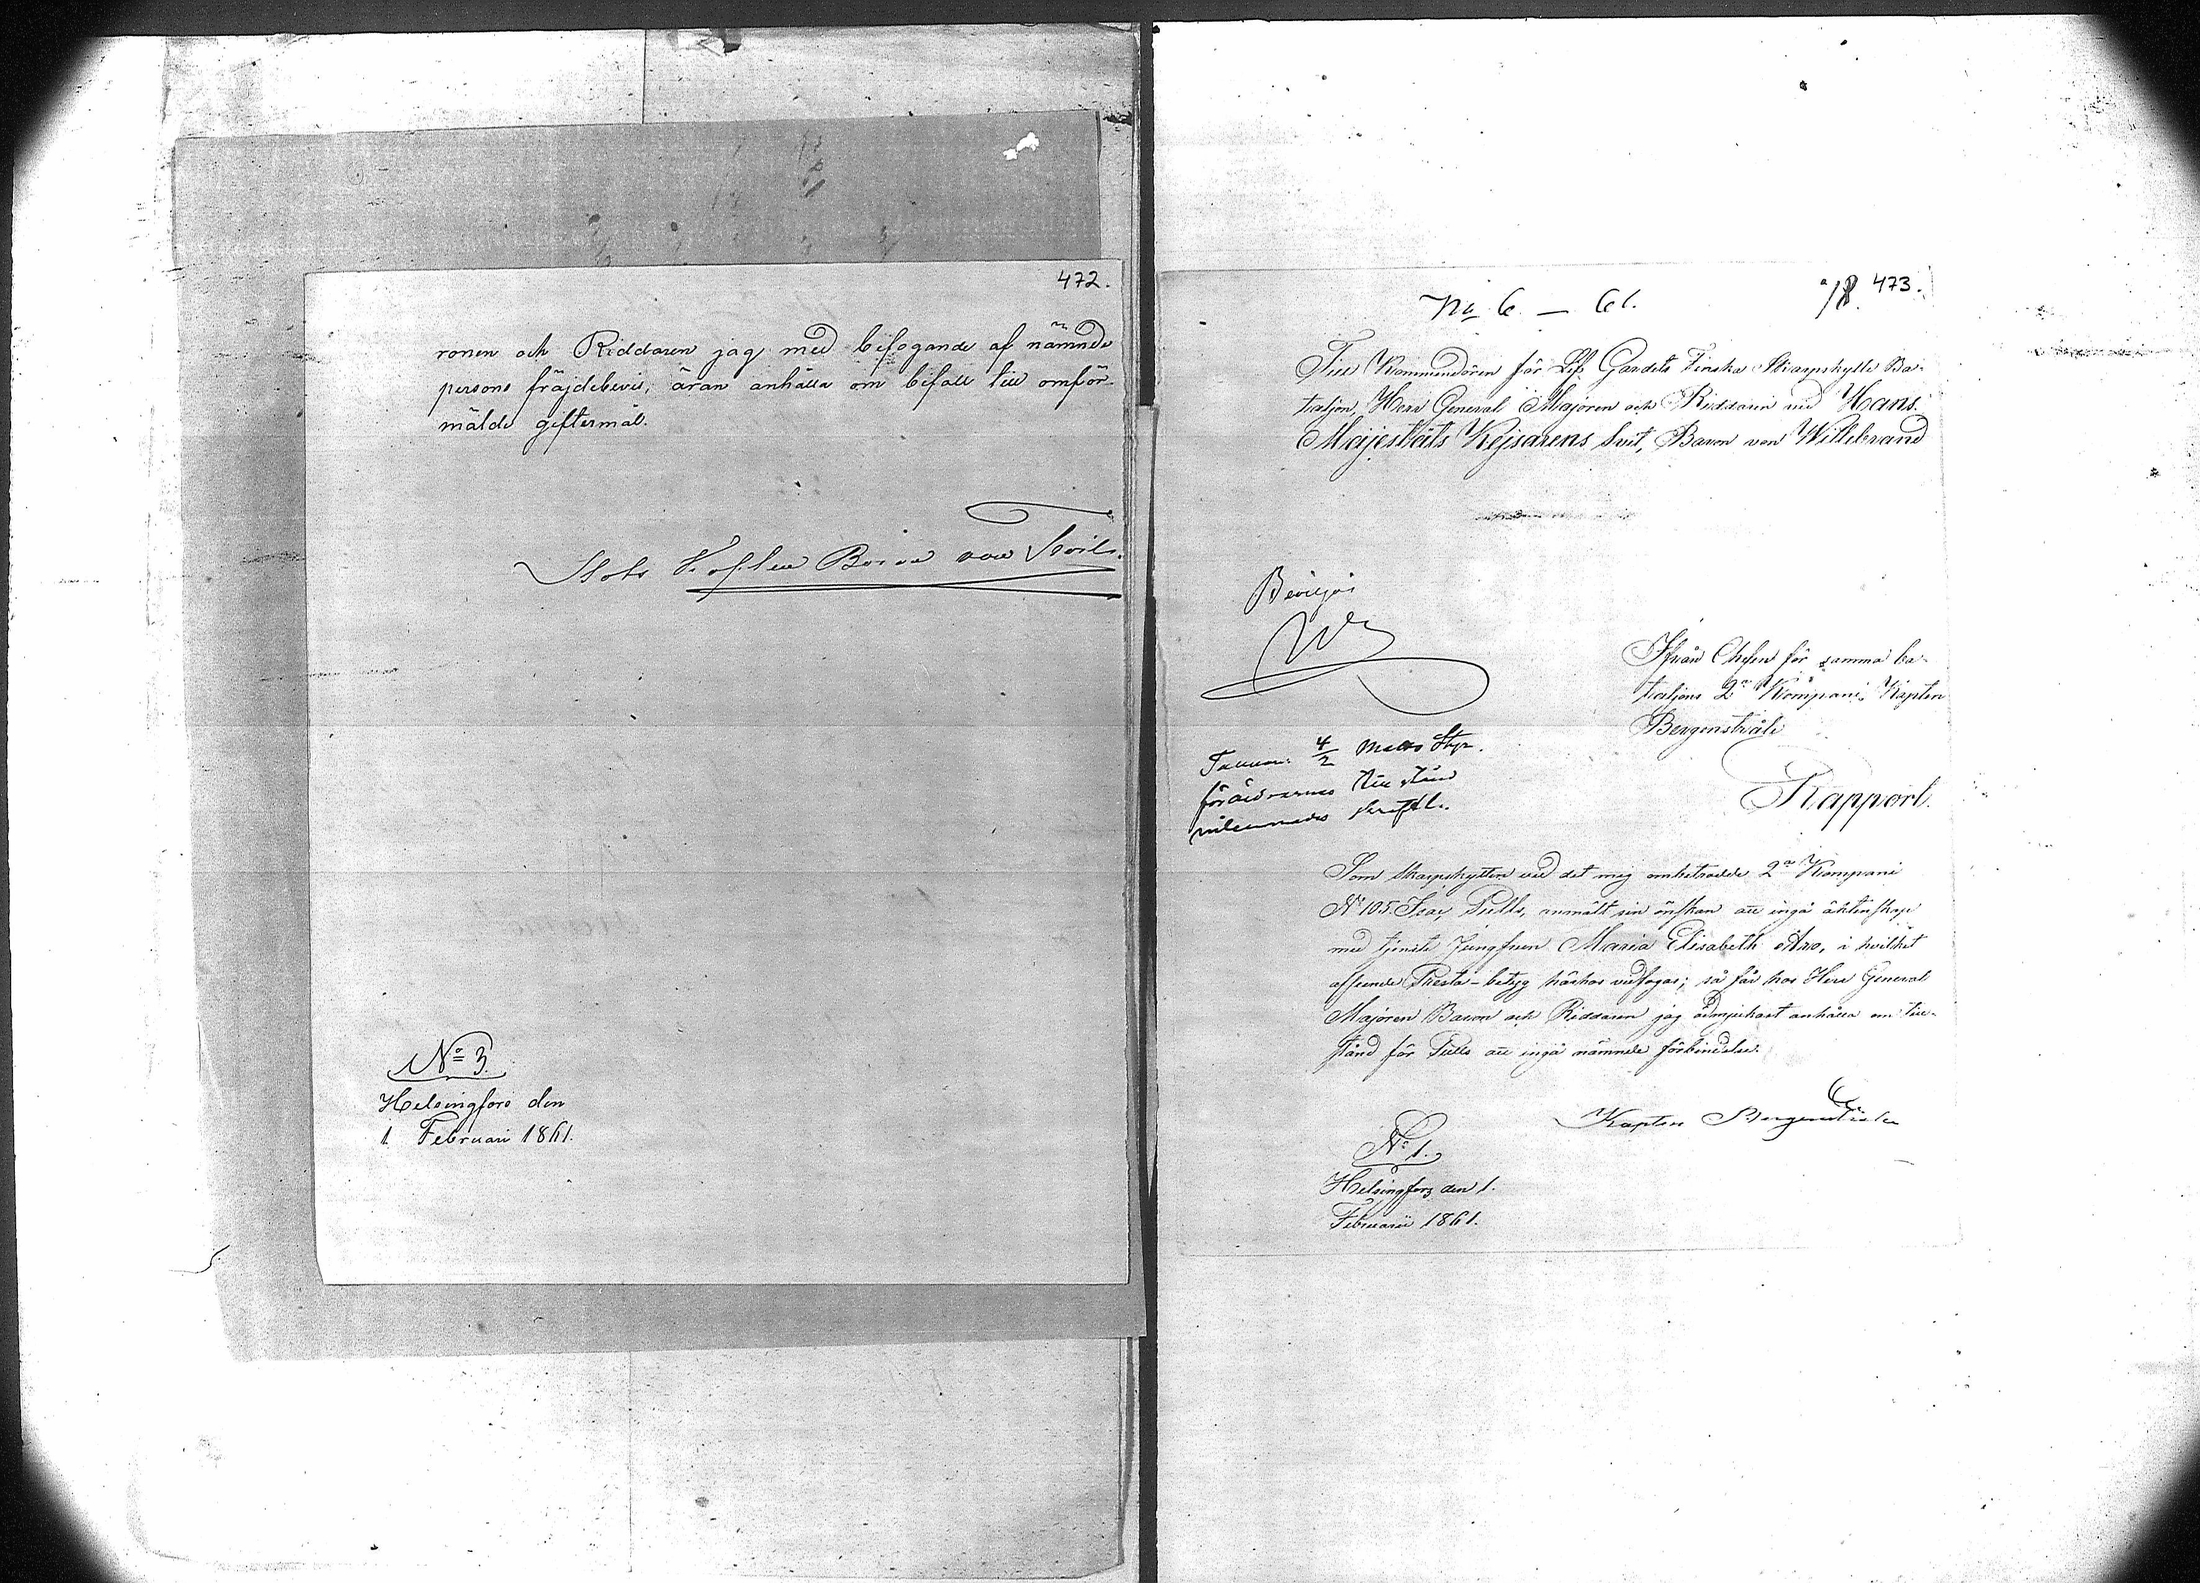 472.
ronen och Riddaren jag med bifogande af nämnde
persons fräjdebevis, äran anhålla om bifall till omför-
mälde giftermål.
Baron von
No 3.
Helsingfors den
1 Februari 1861.
473.
No 6 — 61.
Till Kommendören för Lif Gardets Finska Skarpskytte Ba-
taljon, Herr General Majoren och Riddaren vid Hans
Majestäts Kejsarens Svit, Baron von Willebrand
Beviljas
Ifrån Chefen för samma ba-
taljons 2a Kompani, Kapten
Bergenstråle
4/2
föräldrarnes
Rapport.
Som skarpskytten vid det mig anbetrodde 2a Kompani
No 105 Isac Pulli, anmält sin önskan att ingå äktenskap
med tjenste Jungfrun Maria Elisabeth Aro, i hvilket
afseende Presta-betyg härhos vidfogas; så får hos Herr General
Majoren Baron och Riddaren jag ödmjukast anhålla om till-
stånd för Pulli att ingå nämnde förbindelse.
Kapten Bergenstråle
No 1.
Helsingfors den 1.
Februarii 1861.